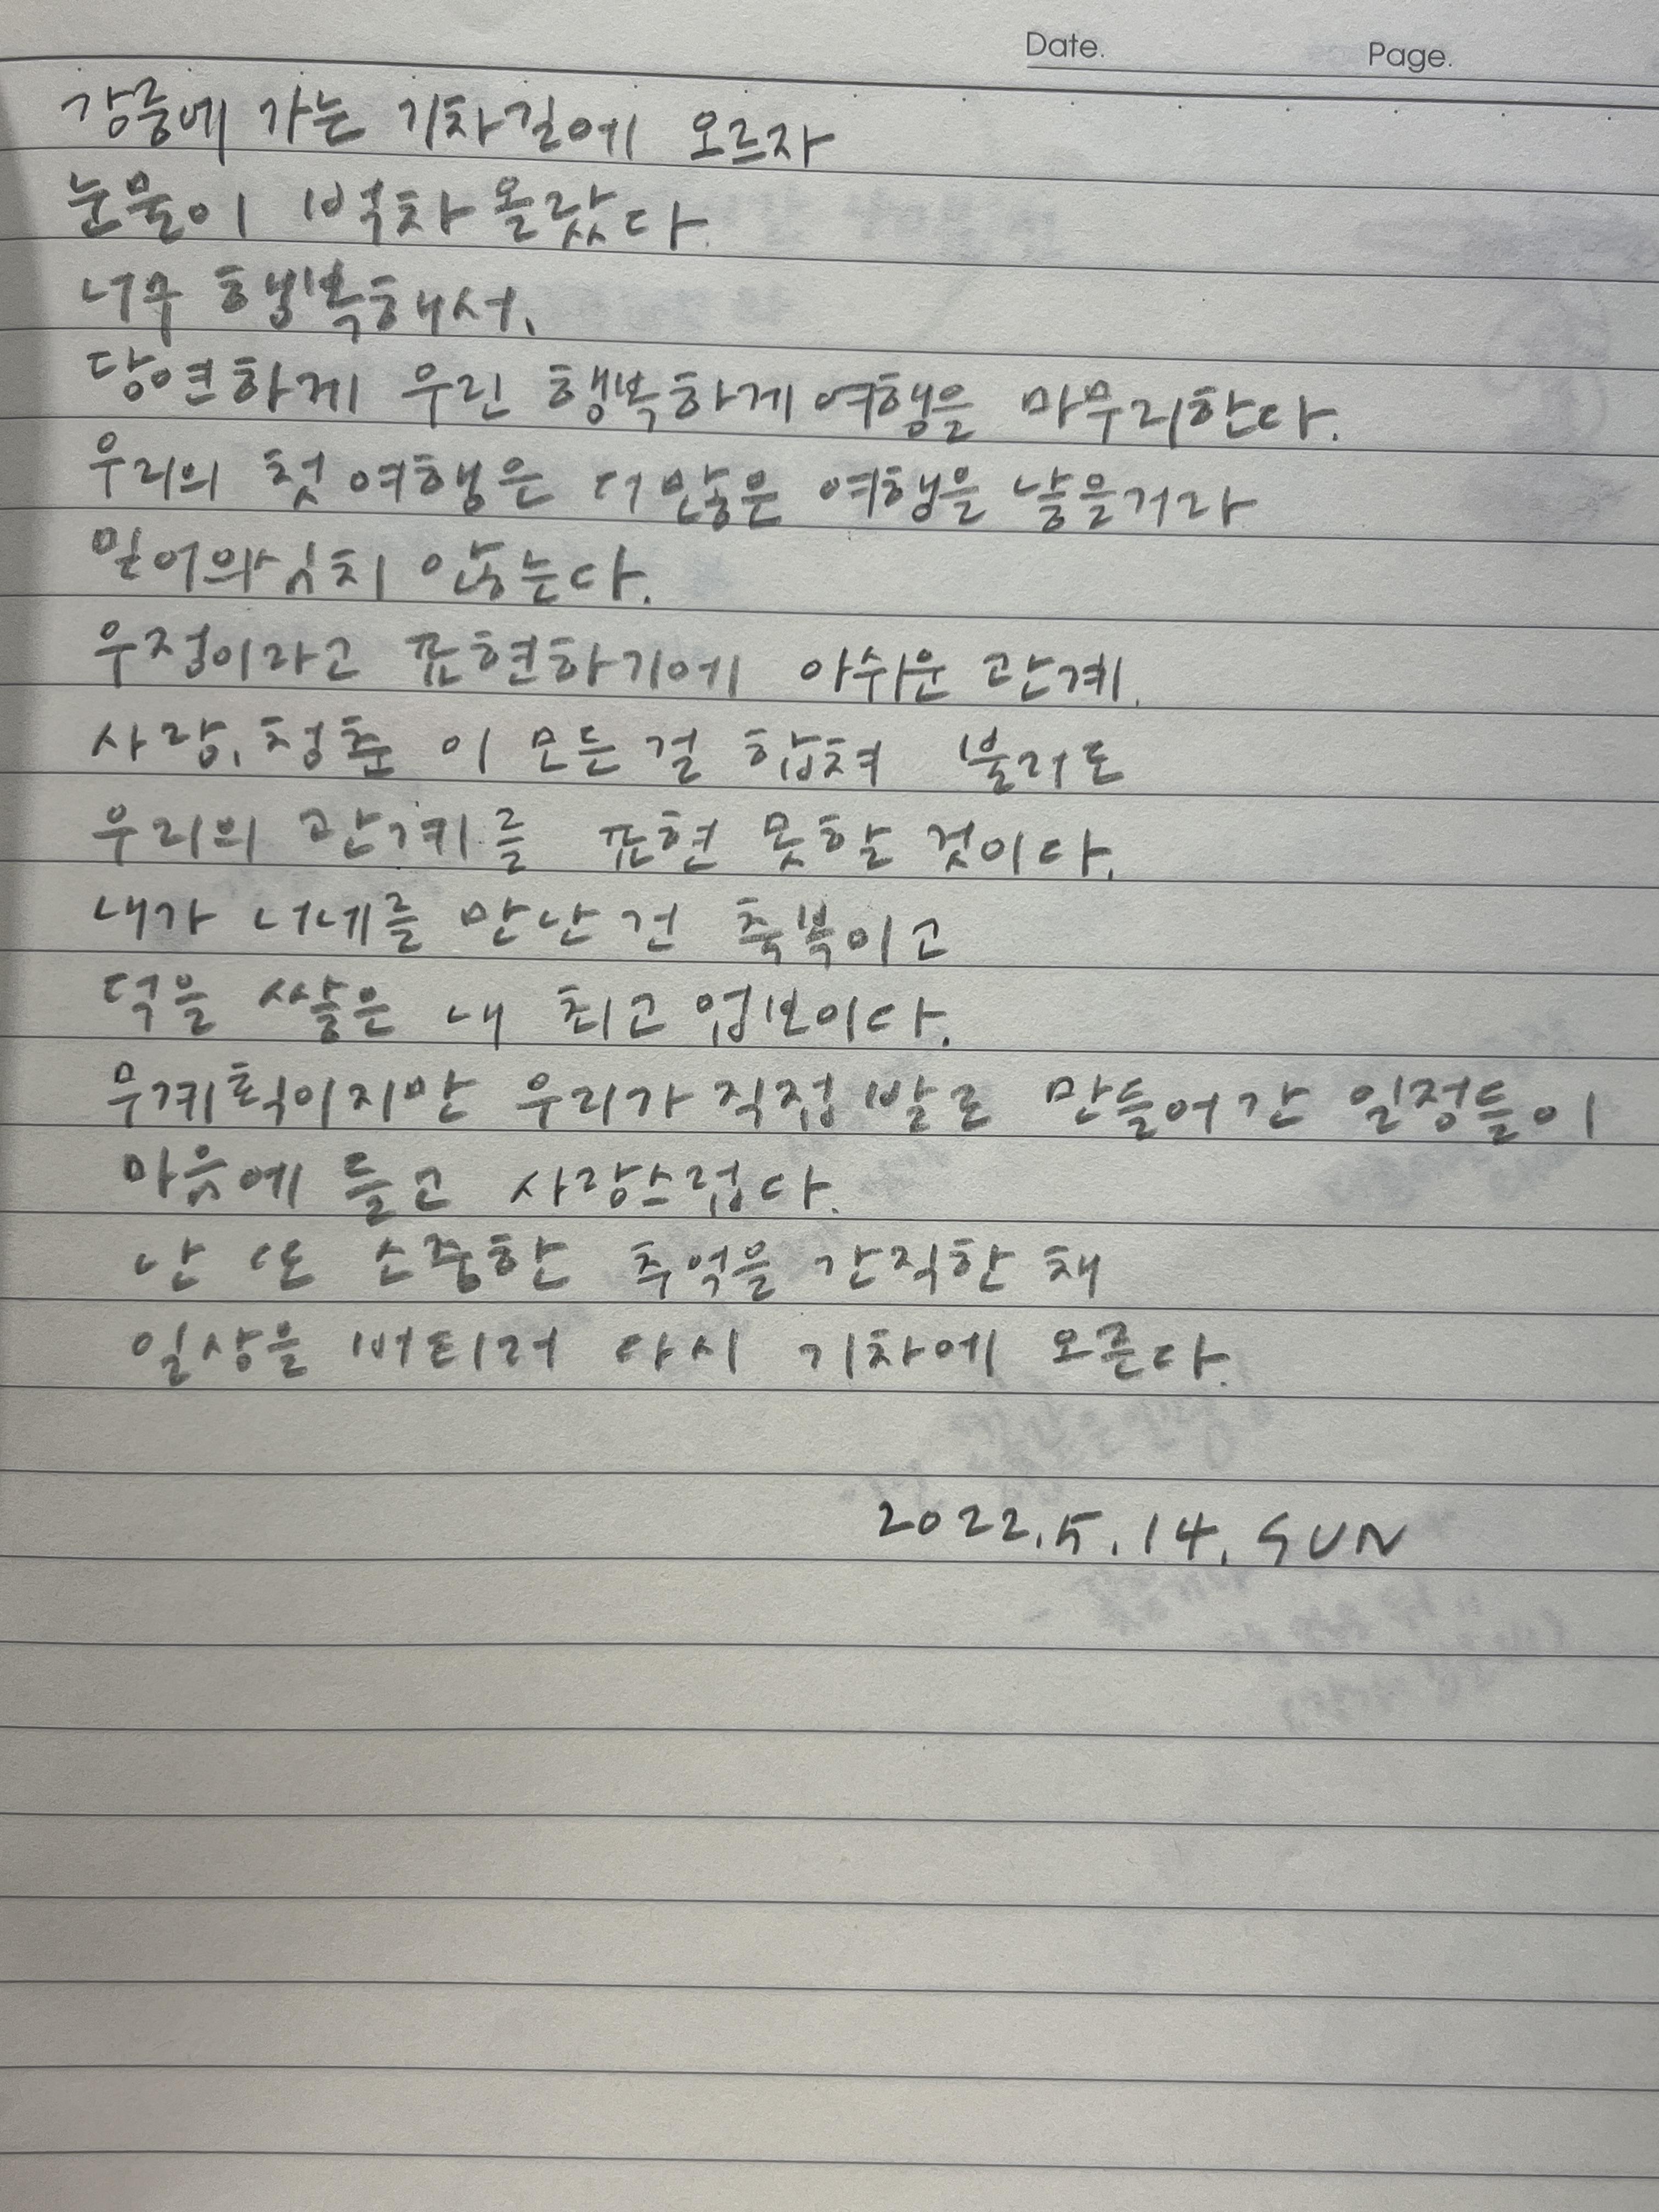 Date. Page.
강릉에 가는 기차길에 오르자
눈물이 벅차 올랐다.
너무 행복해서.
당연하게 우린 행복하게 여행을 마무리한다.
우리의 첫 여행은 더 많은 여행을 낳을거라
믿어 의심치 않는다.
우정이라고 표현하기에 아쉬운 관계.
사랑, 청춘 이 모든 걸 합쳐 불러도
우리의 관계를 표현 못할 것이다.
내가 너네를 만난 건 축복이고
덕을 쌓은 내 최고 업보이다.
무계획이지만 우리가 직접 발로 만들어 간 일정들이
마음에 들고 사랑스럽다.
난 또 소중한 추억을 간직한 채
일상을 버티러 다시 기차에 오른다.
2022.5.14. SUN